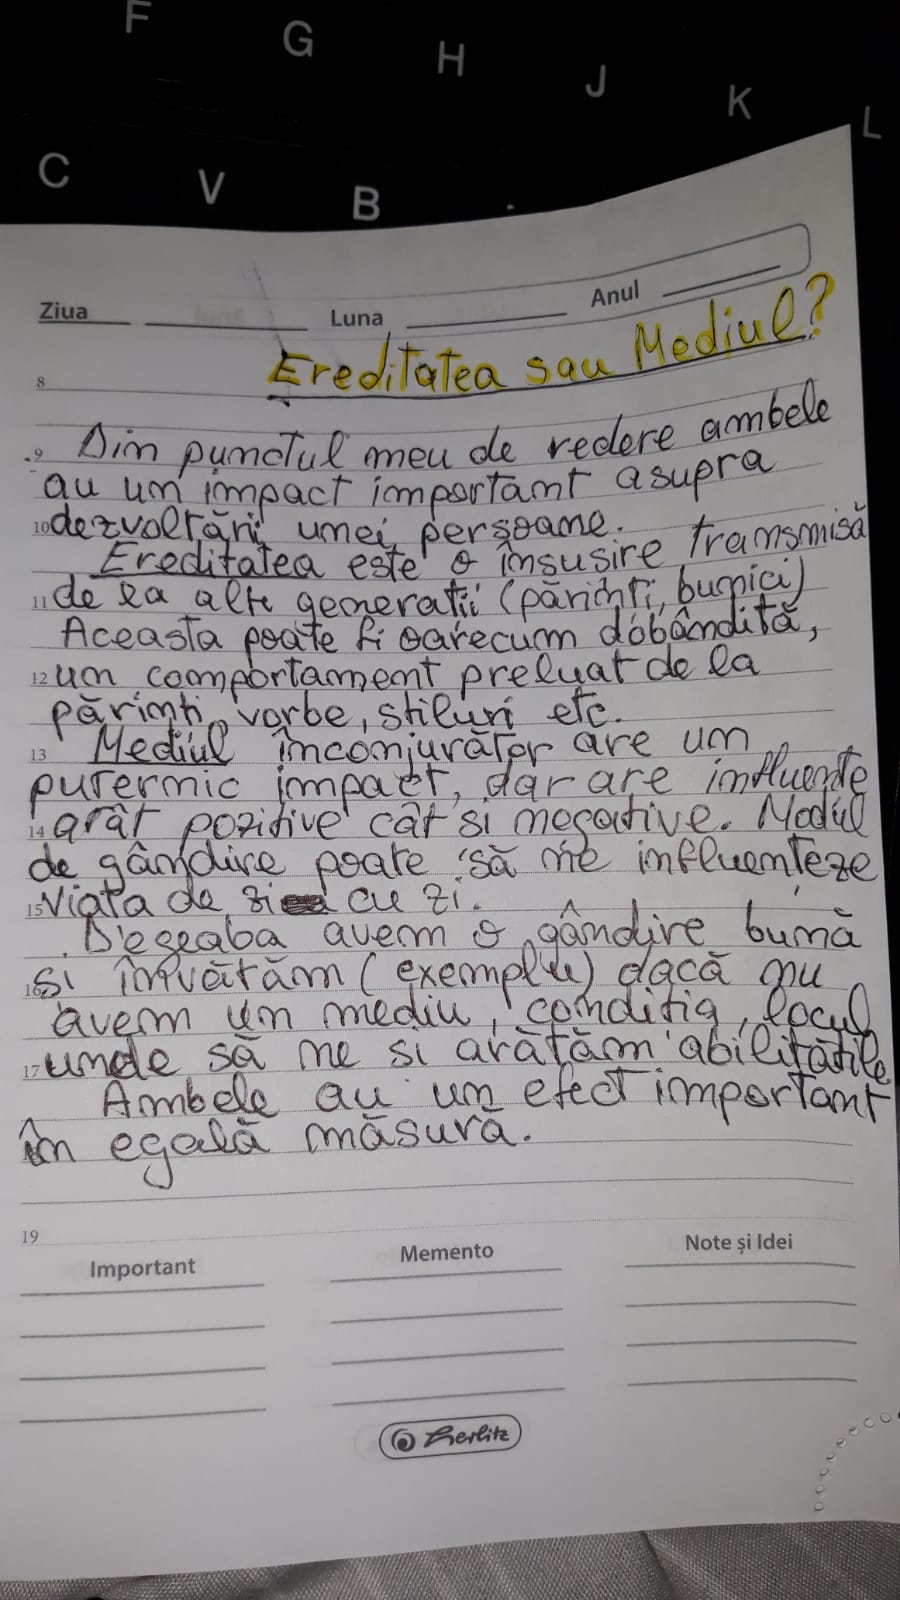 F
G
H
J
K
L
C
V
B
Ziua
Luna
Anul
Ereditatea sau Mediul?
8
9 Din punctul meu de vedere ambele
au un impact important asupra
10 dezvoltării unei persoane.
Ereditatea este o însusire transmisă
11 de la alte generatii (părinți, bunici)
Aceasta poate fi oarecum dobândită,
12 un comportament preluat de la
părinți, vorbe, stiluri etc.
13 Mediul înconjurător are un
puternic impact, dar are influențe
14 atât pozitive cât si negative. Modul
de gândire poate să ne influențeze
15 viata de zi cu zi.
Degeaba avem o gândire bună
16 si învătăm (exemplu) dacă nu
avem un mediu, conditia, locul
17 unde să ne si arătăm abilitătile
Ambele au un efect important
în egală măsură.
19
Important
Memento
Note și Idei
Herlitz